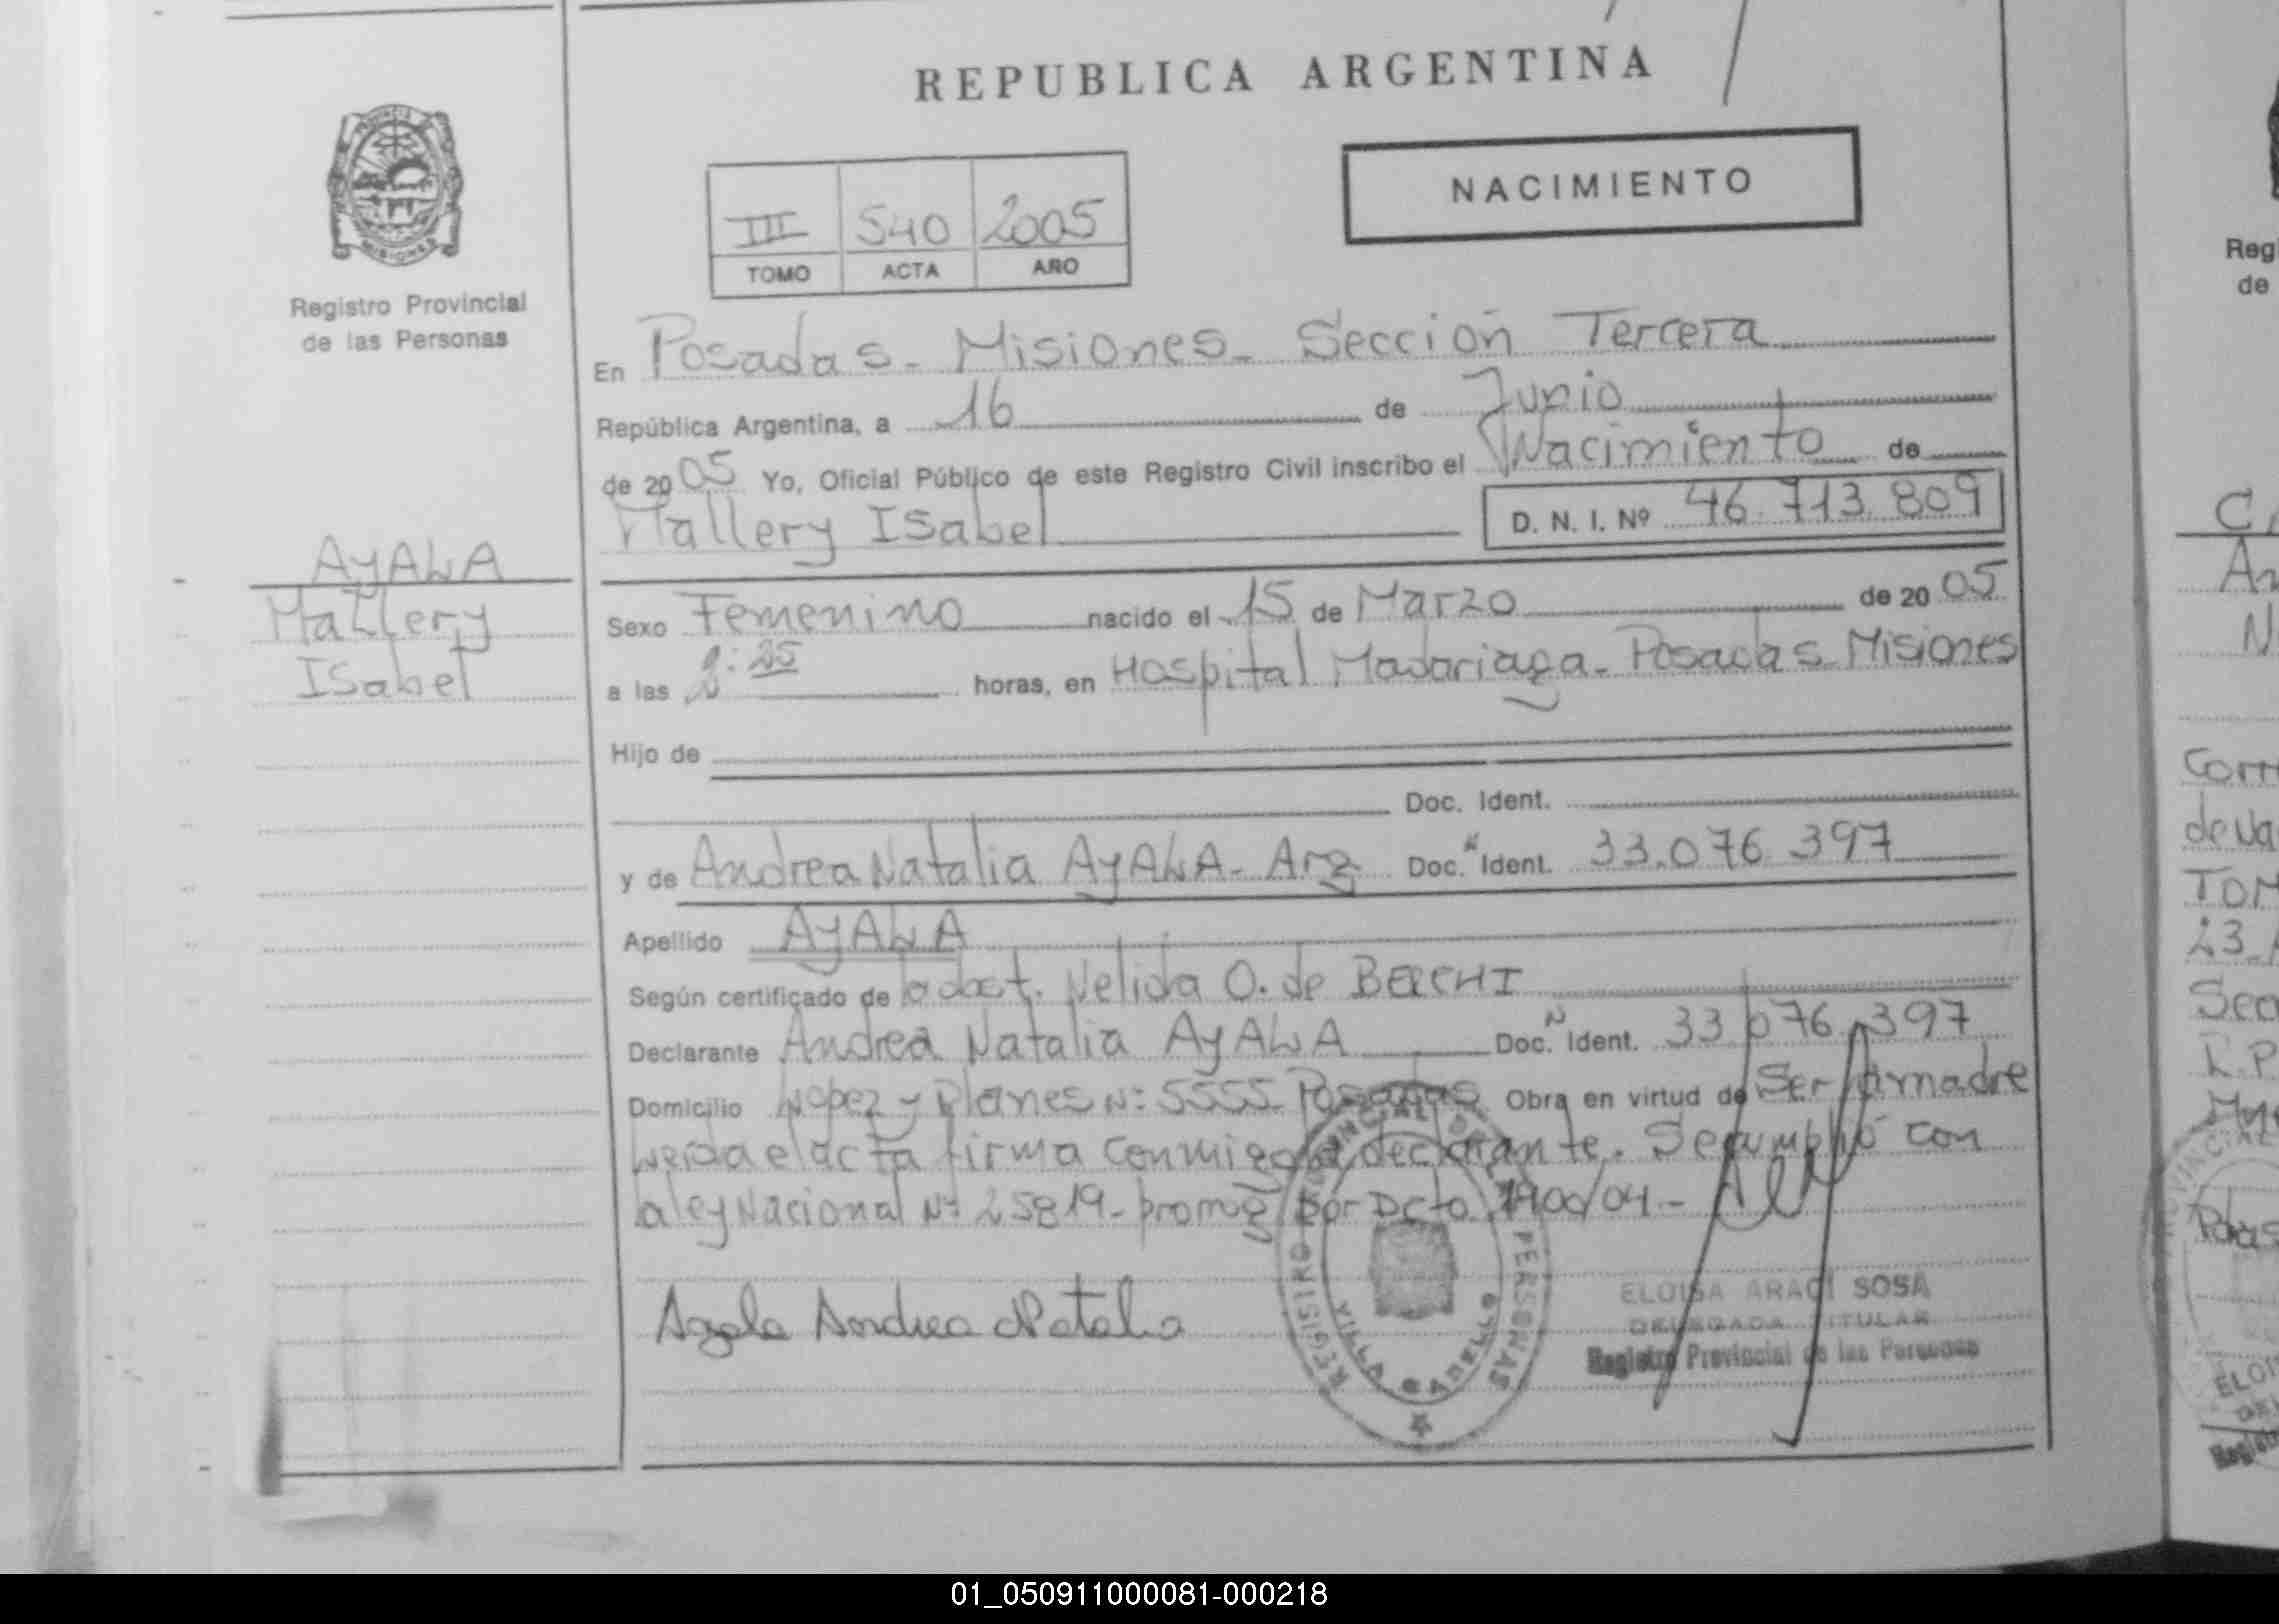 REPUBLICA ARGENTINA
NACIMIENTO
III 540 2005
TOMO ACTA AÑO
Registro Provincial
de las Personas
En Posadas - Misiones - Sección Tercera
República Argentina, a 16 de Junio
de 2005 Yo, Oficial Público de este Registro Civil inscribo el Nacimiento de
Mallery Isabel D. N. I. Nº 46.713.809
AYALA
Mallery
Isabel
Sexo Femenino nacido el 15 de Marzo de 2005
a las :25 horas, en Hospital Madariaga - Posadas - Misiones
Hijo de
Doc. Ident.
y de Andrea Natalia AYALA - Arg Doc. Ident. 33.076.397
Apellido AYALA
Según certificado de Nelida O. de
Declarante Andrea Natalia AYALA Doc. Ident. 33.076.397
Domicilio Lopez y Planes Nº 5555 Posadas Obra en virtud de Ser la madre
Leida el acta firma conmigo declarante. Se cumplió con
la ley Nacional Nº 25819 - promg por Dcto 1400/04 -
Ayala Andrea Natalia
REGISTRO PROVINCIAL DE PERSONAS
VILLA CABELLO
ELOISA ARACI SOSA
DELEGADA TITULAR
Registro Provincial de las Personas
Reg
de
Corr
TOM
23
Sec
R.P
Posas
ELOI
DEL
Regist
01_050911000081-000218